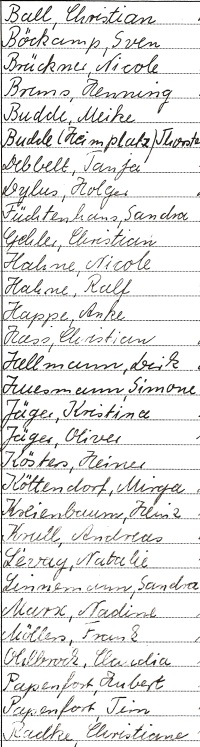 Ball, Christian
Böckamp, Sven
Brückner, Nicole
Brums, Henning
Budde, Meike
Budde (Heimplatz) Thorste
Debbelt, Tanja
Dylus, Holger
Füchtenhans, Sandra
Gehle, Christian
Hahne, Nicole
Hahne, Ralf
Happe, Anke
Hass, Christian
Hellmann, Dirk
Huesmann, Simone
Jäger, Kristina
Jäger, Oliver
Kösters, Heiner
Köttendorf, Mirga
Kreienbaum, Heinz
Krull, Andreas
Natalie
Linnemann, Sandra
Marx, Nadine
Möllers, Frank
Claudia
Papenfort, Hubert
Papenfort Tim
Radtke, Christiane